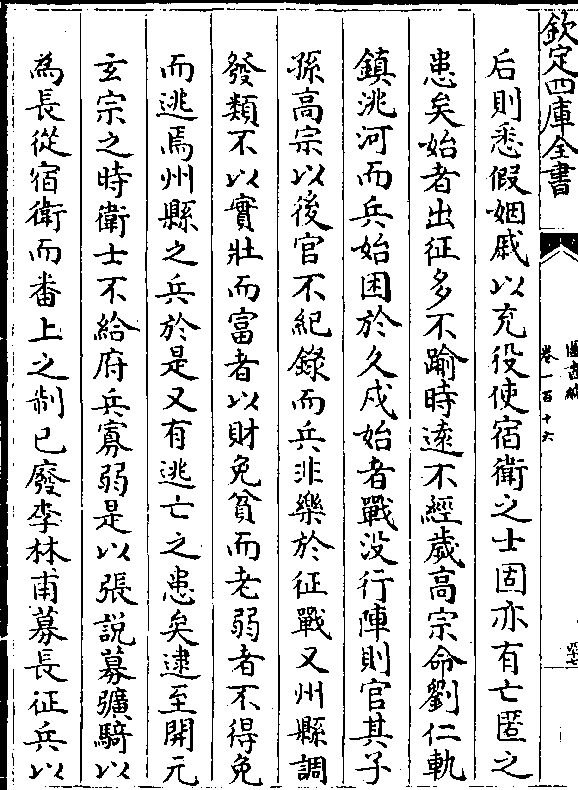 欽定四庫全書
圖書編
卷一百十六
后則悉假姻戚以充役使宿衛之士固亦有亡匿之
患矣始者出征多不踰時遠不經歲高宗命劉仁軌
鎮洮河而兵始困於久戍始者戰没行陣則官其子
孫高宗以後官不紀錄而兵非樂於征戰又州縣調
發類不以實壯而富者以財免貧而老弱者不得免
而逃焉州縣之兵於是又有逃亡之患矣逮至開元
玄宗之時衛士不給府兵寡弱是以張説募彍騎以
為長從宿衛而番上之制已廢李林甫募長征兵以